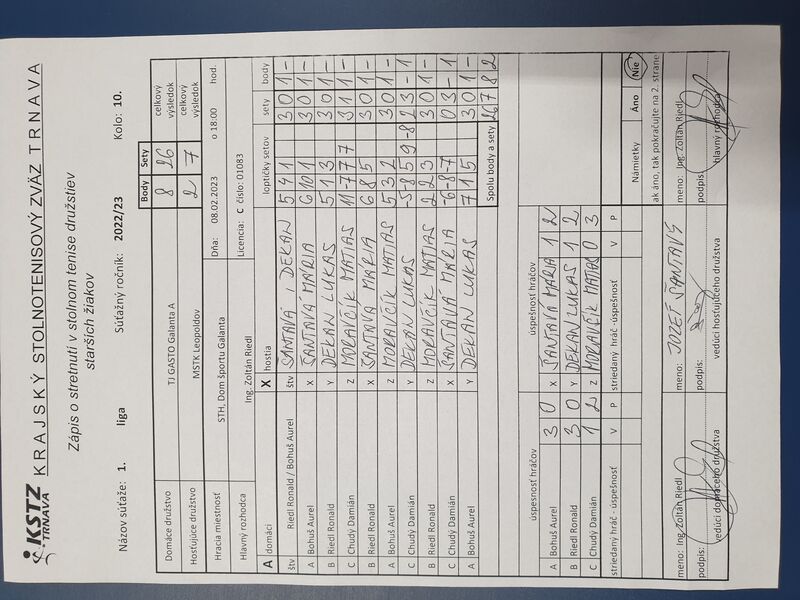 KSTZ
TRNAVA
KRAJSKÝ STOLNOTENISOVÝ ZVÄZ TRNAVA
Zápis o stretnutí v stolnom tenise družstiev
starších žiakov
Názov súťaže: 1. liga Súťažný ročník: 2022/23 Kolo: 10.
Body Sety
Domáce družstvo TJ GASTO Galanta A 8 26 celkový výsledok
Hosťujúce družstvo MSTK Leopoldov 2 7 celkový výsledok
Hracia miestnosť STH, Dom športu Galanta Dňa: 08.02.2023 o 18:00 hod.
Hlavný rozhodca Ing. Zoltán Riedl Licencia: C číslo: 01083
A domáci X hostia loptičky setov sety body
štv Riedl Ronald / Bohuš Aurel štv ŠANTAVÁ / DEKAN 5 4 1 3 0 1 -
A Bohuš Aurel X ŠANTAVÁ MÁRIA 6 10 1 3 0 1 -
B Riedl Ronald Y DEKAN LUKÁŠ 5 1 3 3 0 1 -
C Chudý Damián Z MORAVČÍK MATIAS 11 -7 7 7 3 1 1 -
B Riedl Ronald X ŠANTAVÁ MÁRIA 6 8 5 3 0 1 -
A Bohuš Aurel Z MORAVČÍK MATIAS 5 3 2 3 0 1 -
C Chudý Damián Y DEKAN LUKÁŠ -5 -8 5 9 -8 2 3 - 1
B Riedl Ronald Z MORAVČÍK MATIAS 2 2 3 3 0 1 -
C Chudý Damián X ŠANTAVÁ MÁRIA -6 -8 -7 0 3 - 1
A Bohuš Aurel Y DEKAN LUKÁŠ 7 1 5 3 0 1 -
Spolu body a sety 26 7 8 2
úspesnosť hráčov úspesnosť hráčov
A Bohuš Aurel 3 0 X ŠANTAVÁ MÁRIA 1 2
B Riedl Ronald 3 0 Y DEKAN LUKÁŠ 1 2
C Chudý Damián 1 2 Z MORAVČÍK MATIAS 0 3
striedaný hráč -úspešnosť V P striedaný hráč -úspešnosť V P
Námietky Áno Nie
ak áno, tak pokračujte na 2. strane
meno: Ing. Zoltán Riedl meno: JOZEF ŠANTAVÝ meno: Ing. Zoltán Riedl
podpis: podpis: podpis:
vedúci domáceho družstva vedúci hosťujúceho družstva hlavný rozhodca